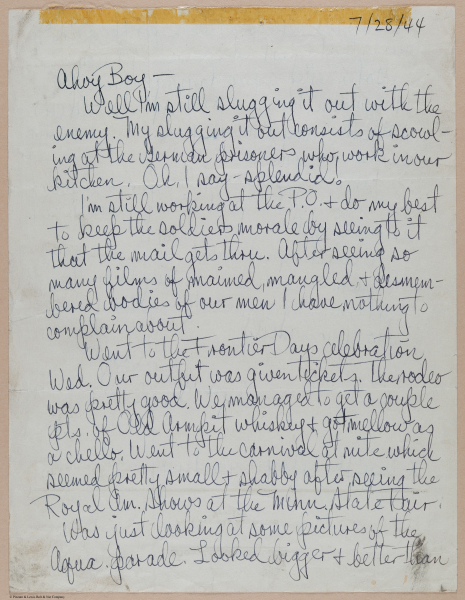 7/28/44
Ahoy Boy —
Well I'm still slugging it out with the
enemy. My slugging it out consists of scowl-
ing at the German prisoners who work in our
kitchen. Oh, I say – splendid!
I'm still working at the P.O. + do my best
to keep the soldiers morale by seeing to it
that the mail gets thru. After seeing so
many films of maimed, mangled, + dismem-
bered bodies of our men I have nothing to
complain about.
Went to the Frontier Days celebration
Wed. Our outfit was given tickets. The rodeo
was pretty good. We managed to get a couple
pts. of Old Armpit whiskey + got mellow as
a chello. Went to the carnival at nite which
seemed pretty small + shabby after seeing the
Royal Am. Shows at the Minn. State Fair.
Was just looking at some pictures of the
Aqua. parade. Looked bigger + better than